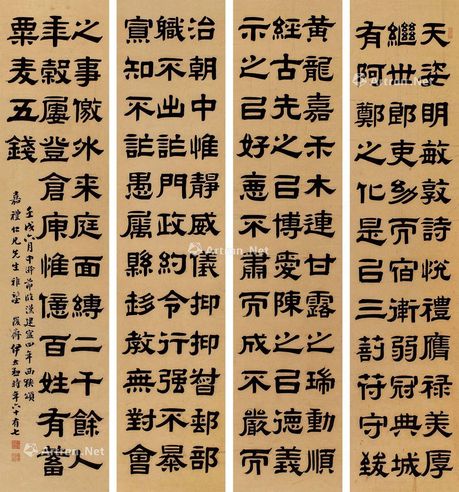 天姿明敏敦詩悅禮膺祿美厚
繼世郎吏幼而宿衛弱冠典城
有阿鄭之化是以三剖符守致
黃龍嘉禾木連甘露之瑞動順
經古先之以博愛陳之以德義
示之以好惡不肅而成不嚴而
治朝中惟靜威儀抑抑督郵部
職不出府門政約令行強不暴
寡知不詐愚屬縣趍教無對會
之事徼外来庭面縛二千餘人
年穀屢登倉庾惟億百姓有蓄
粟麦五錢
壬戌六月中澣節臨漢建寧四年西狹頌
嘉禮仁兄先生雅鑒 峻齋伊立勳時年六十有七
Artron.Net
Artron.Net
Artron.Net
Artron.Net